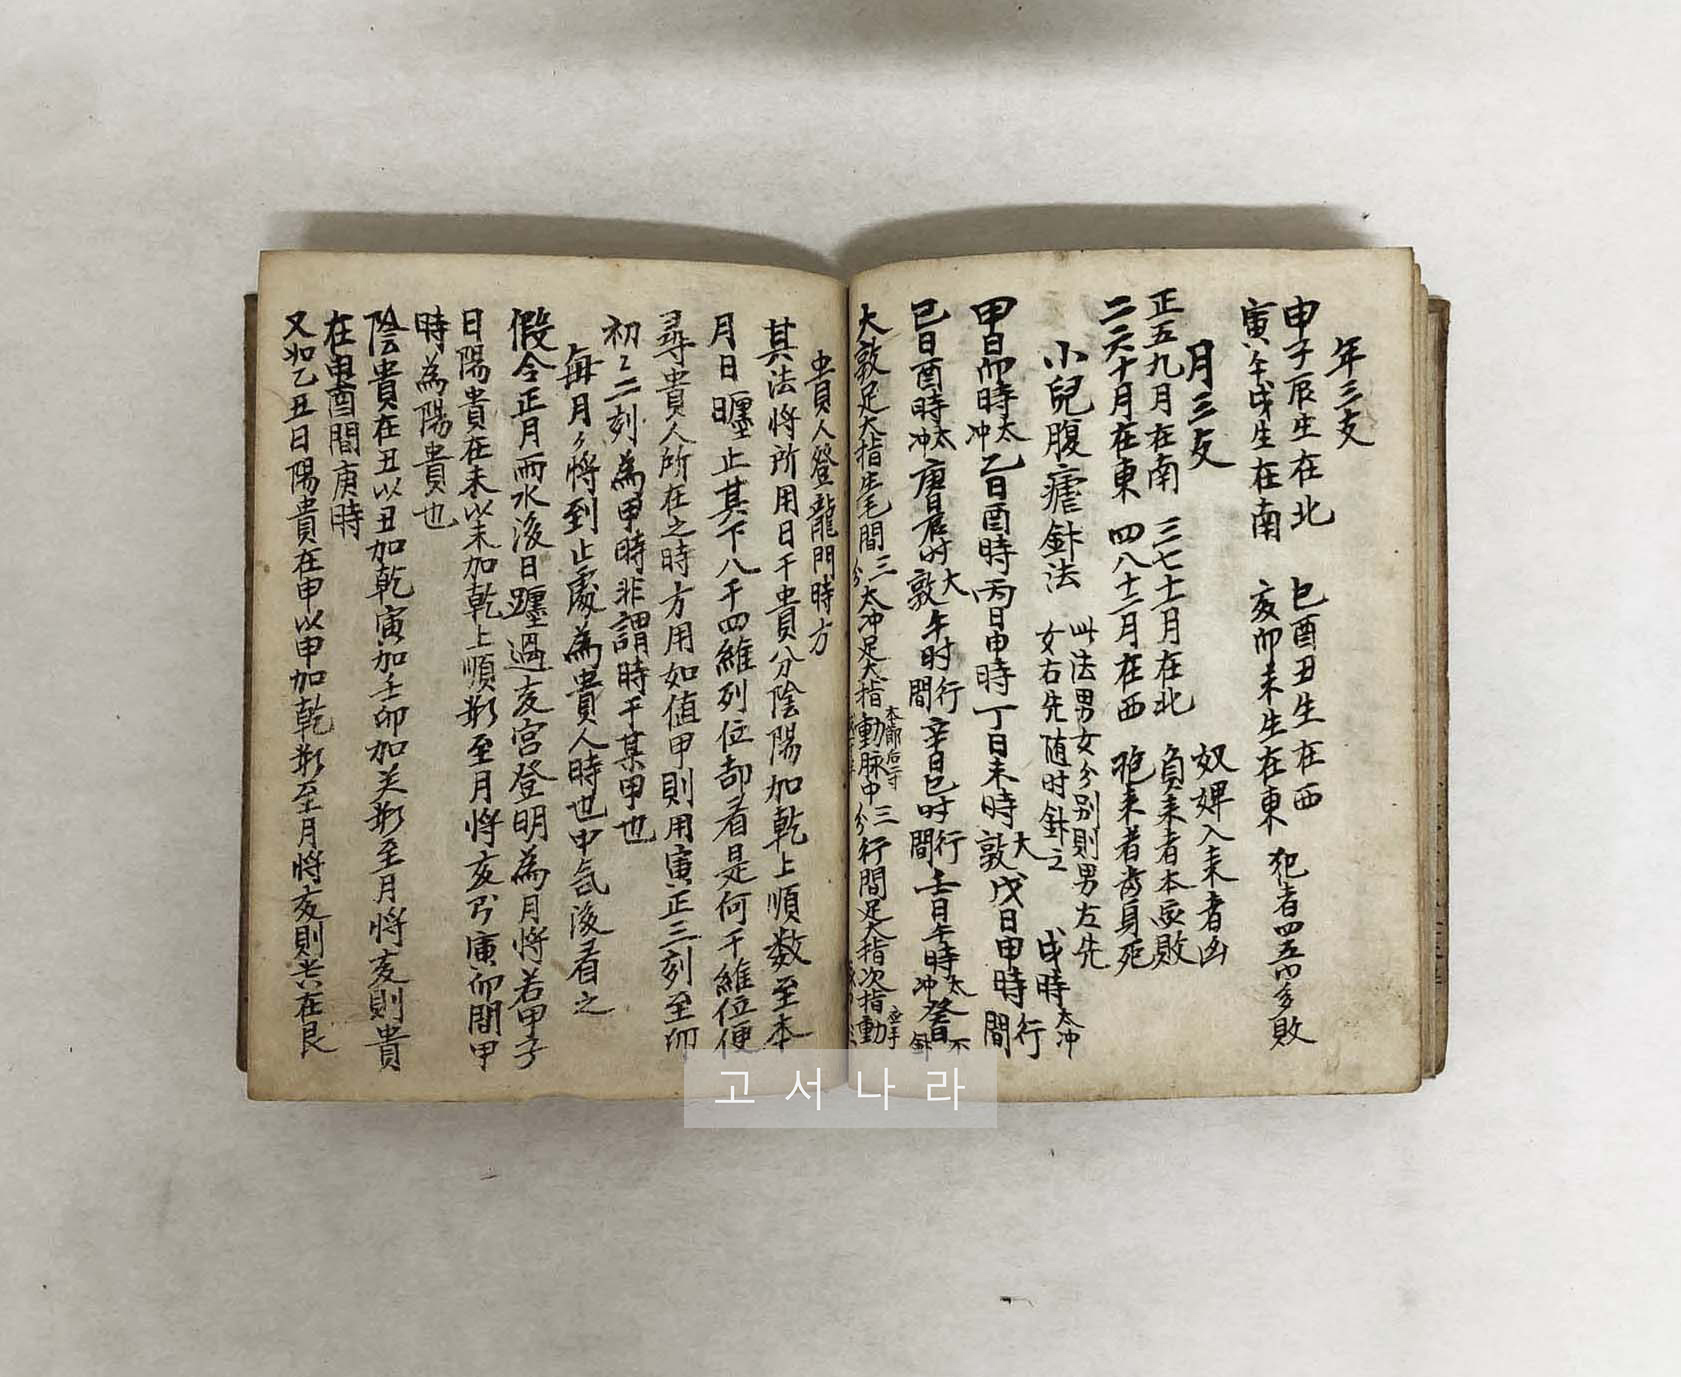 年三支
申子辰生在北 巳酉丑生在西
寅午戌生在南 亥卯未生在東 犯者四五內多敗
月三支
正五九月在南 三七十一月在北
二六十月在東 四八十二月在西
奴婢入来者凶
負来者本 敗
抱来者 身死
小兒腹瘧針法
此法男女分别則男左先
女右先随时針之
戌時太冲
甲日 時太冲 乙日酉時 丙日申時 丁日未時大敦 戊日申時行間
巳日酉時太冲 庚日辰时大敦 午时行間 辛日巳时行間 壬日午時太冲 癸日不針
大敦足大指生毛間三分 太冲足大指 本節后二寸 動脉中三分 行間足大指次指動
貴人登龍門時方
其法將所用日干貴分陰陽加乾上順数至本
月日躔止其下八干四維列位却看是何干維位便
尋貴人所在之時方用如值甲則用寅正三刻至卯
初二刻為甲時非謂時干某甲也
每月月將到止處為貴人時也中氣後看之
假令正月雨水後日躔過亥宮登明為月將若甲子
日陽貴在未以未加乾上順 至月將亥 寅卯間甲
時為陽貴也
陰貴在丑以丑加乾寅加壬卯加 至月將亥則貴
在申酉間庚時
又如乙丑日陽貴在申以申加乾 至月將亥則 在艮
고서나라